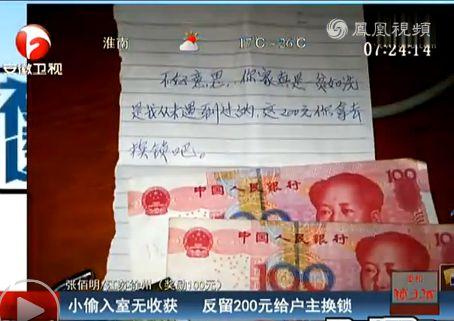 淮南 17°C~26°C 鳳凰視頻
安徽卫视 07:24:14
不好意思..你家真是贫如洗
是我从未遇到过的,这200元你拿去
换锁吧。
中国人民银行 100
中国人民银行 100
张佰明/江苏徐州(奖励100元)
小偷入室无收获 反留200元给户主换锁